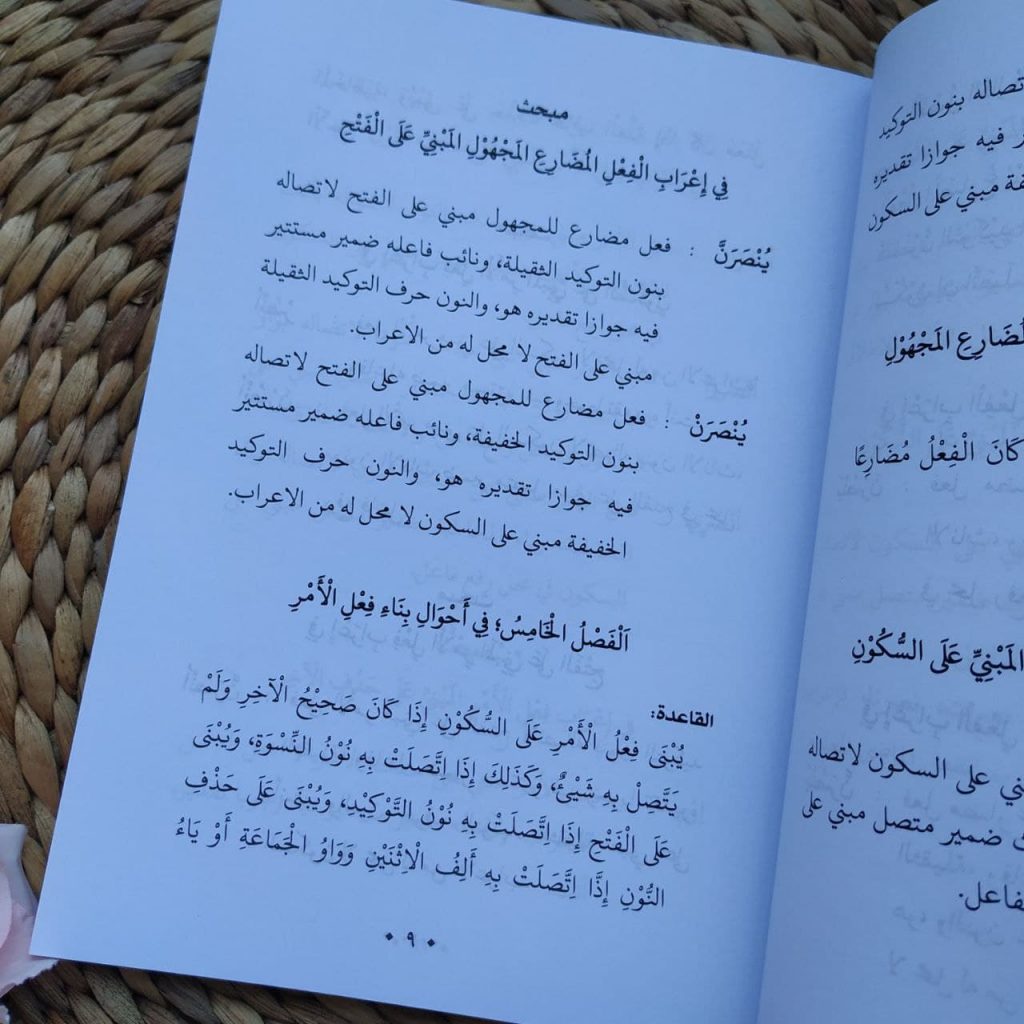 مبحث
فِي إِعْرَابِ الْفِعْلِ الْمُضَارِعِ الْمَجْهُوْلِ الْمَبْنِيِّ عَلَى الْفَتْحِ
يُنْصَرَنَّ : فعل مضارع للمجهول مبني على الفتح لاتصاله
بنون التوكيد الثقيلة، ونائب فاعله ضمير مستتير
فيه جوازا تقديره هو، والنون حرف التوكيد الثقيلة
مبني على الفتح لا محل له من الاعراب.
يُنْصَرَنْ : فعل مضارع للمجهول مبني على الفتح لاتصاله
بنون التوكيد الخفيفة، ونائب فاعله ضمير مستتير
فيه جوازا تقديره هو، والنون حرف التوكيد
الخفيفة مبني على السكون لا محل له من الاعراب.
اَلْفَصْلُ الْخَامِسُ؛ فِي أَحْوَالِ بِنَاءِ فِعْلِ الْأَمْرِ
القاعدة:
يُبْنَى فِعْلُ الْأَمْرِ عَلَى السُّكُوْنِ إِذَا كَانَ صَحِيْحُ الْآخِرِ وَلَمْ
يَتَّصِلْ بِهِ شَيْئٌ، وَكَذَلِكَ إِذَا اِتَّصَلَتْ بِهِ نُوْنُ النِّسْوَةِ، وَيُبْنَى
عَلَى الْفَتْحِ إِذَا اِتَّصَلَتْ بِهِ نُوْنُ التَّوْكِيْدِ، وَيُبْنَى عَلَى حَذْفِ
النُّوْنِ إِذَّا اِتَّصَلَتْ بِهِ أَلِفُ الْاِثْنَيْنِ وَوَاوُ الْجَمَاعَةِ أَوْ يَاءُ
٩
اتصاله بنون التوكيد
فيه جوازا تقديره
مبني على السكون
الْمَجْهُوْلِ
كَانَ الْفِعْلُ مُضَارِعًا
الْمَبْنِيِّ عَلَى السُّكُوْنِ
على السكون لاتصاله
ضمير متصل مبني على